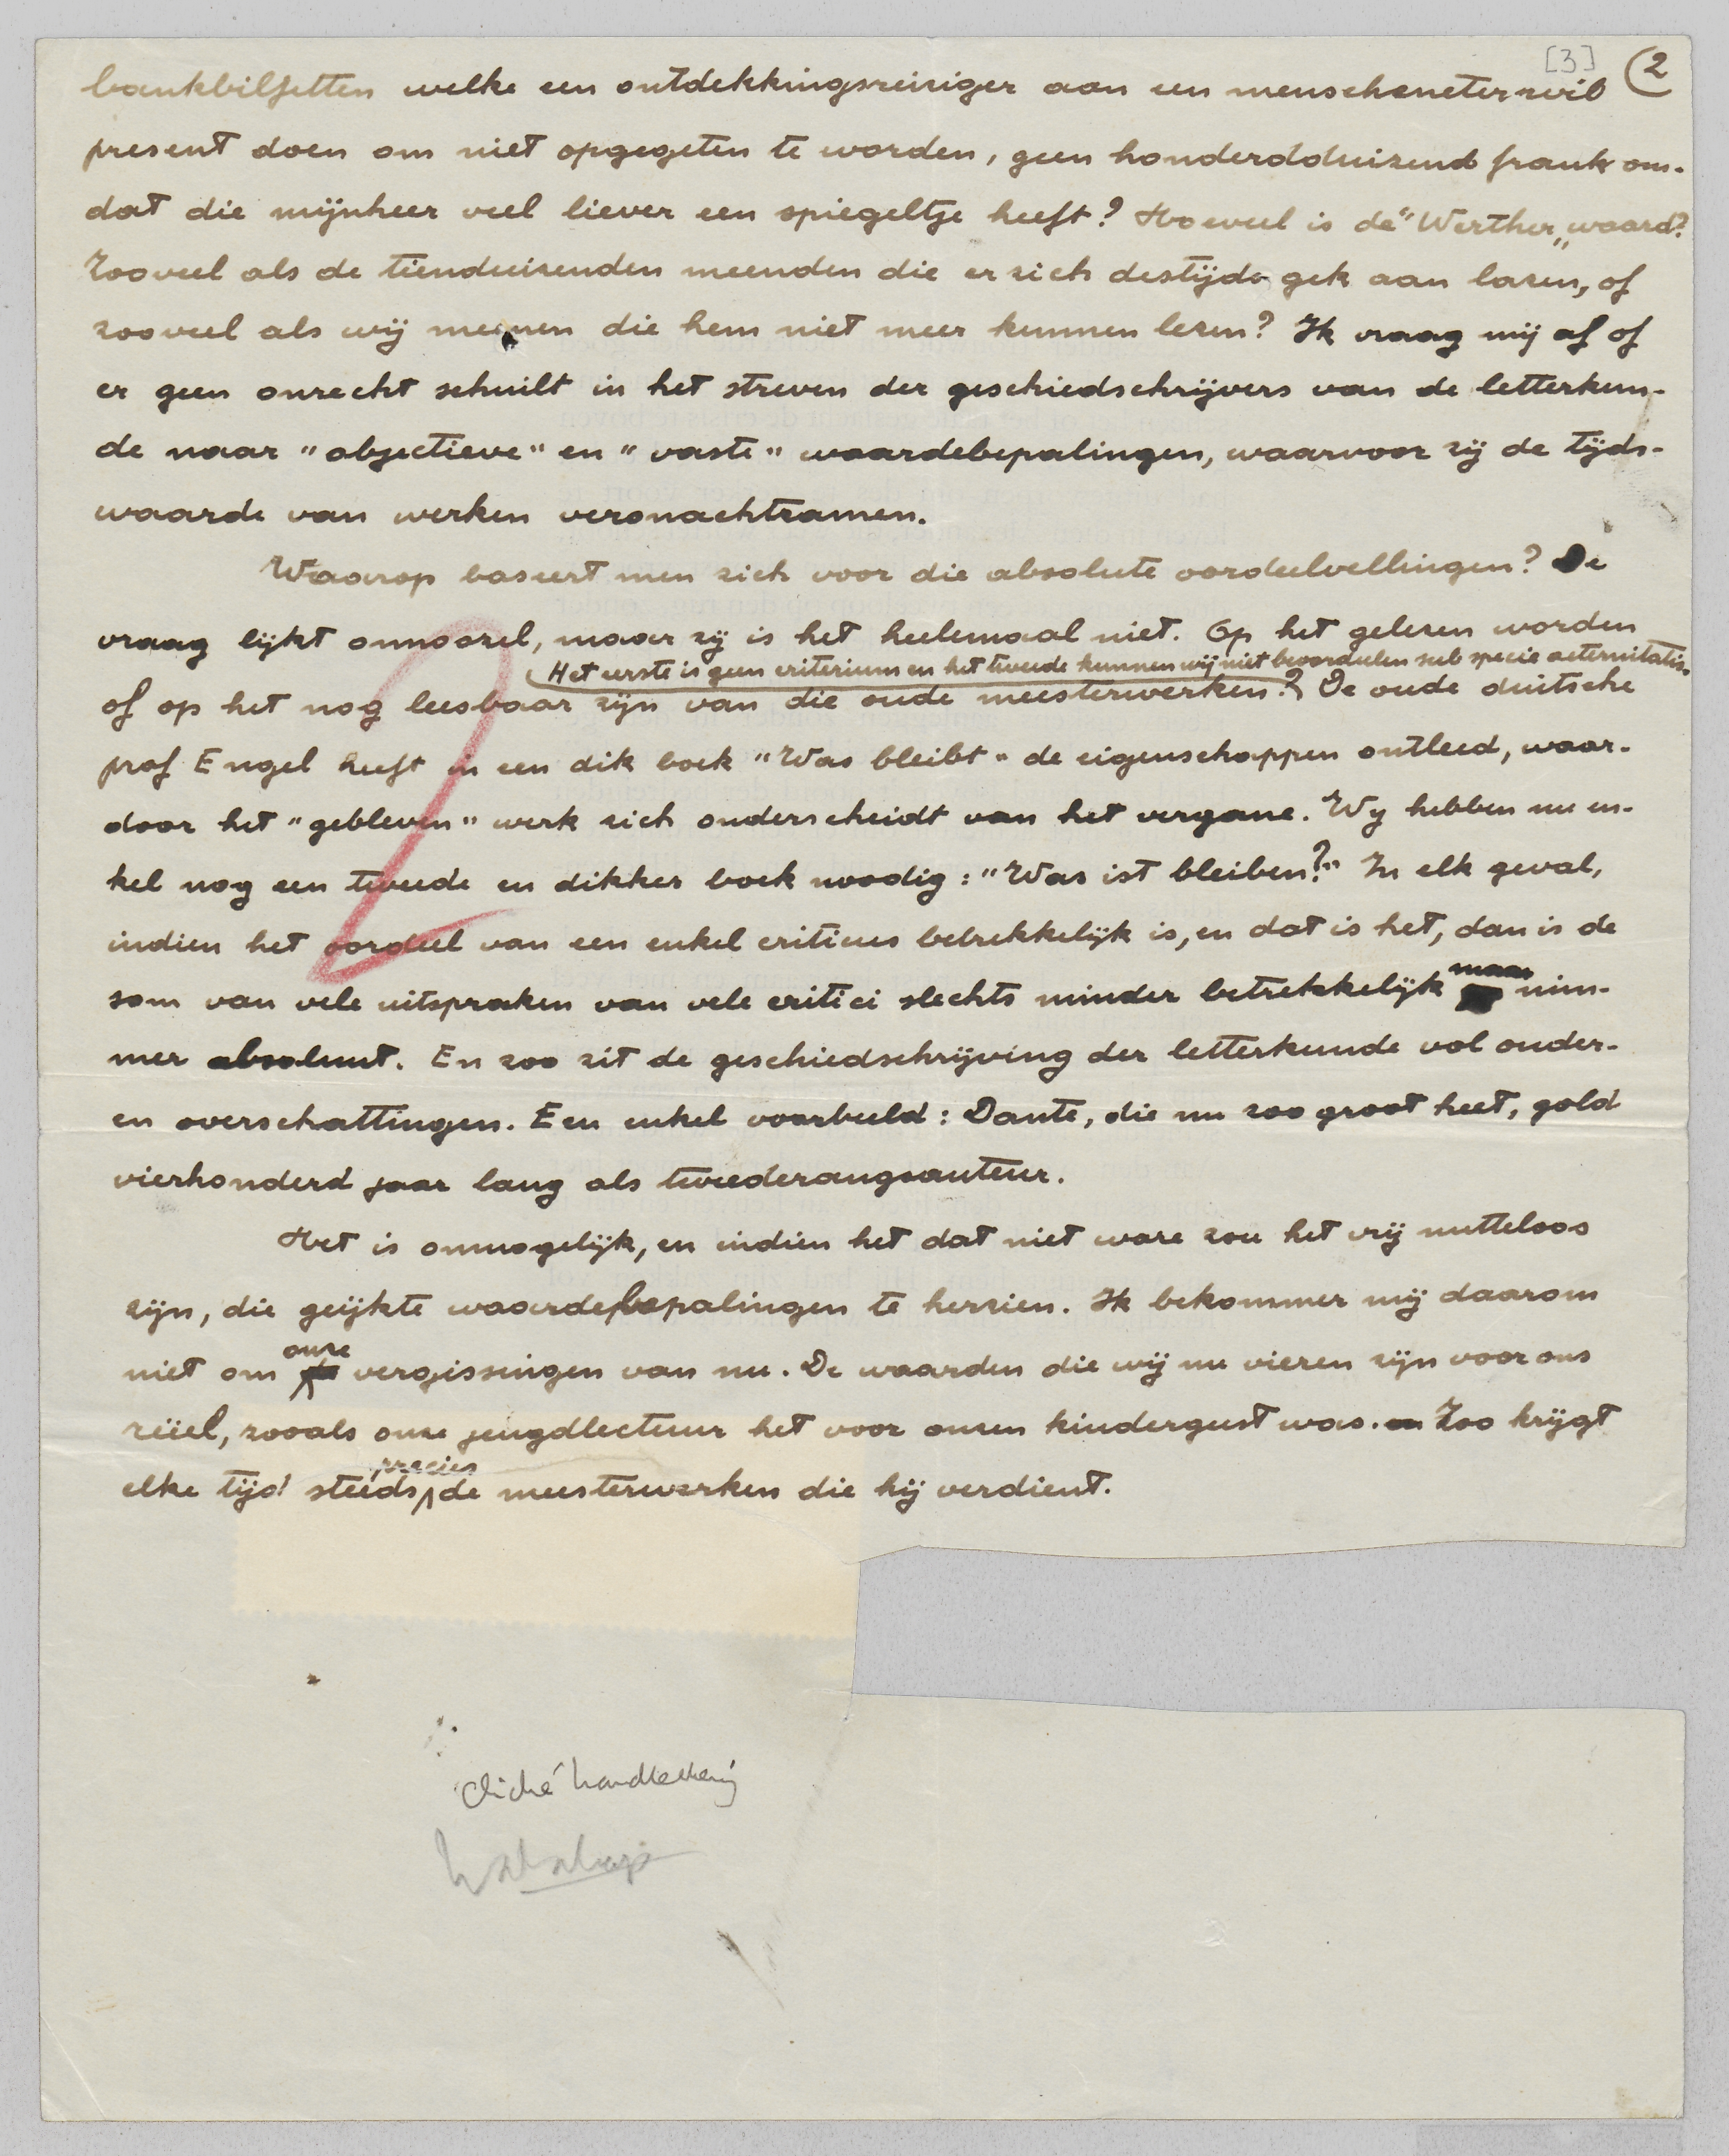 [3] 2
bankbiljetten welke een ontdekkingsreiziger aan een menscheneter wil
present doen om niet opgegeten te worden, geen honderdduizend frank om-
dat die mijnheer veel liever een spiegeltje heeft? Hoeveel is de "Werther" waard?
Zooveel als de tienduizenden meenden die er zich destijds gek aan lazen, of
zooveel als wij meenen die hem niet meer kunnen lezen? Ik vraag mij af of
er geen onrecht schuilt in het streven der geschiedschrijvers van de letterkun-
de naar "objectieve" en "vaste" waardebepalingen, waarvoor zij de tijds-
waarde van werken veronachtzamen.
Waarop baseert men zich voor die absolute oordeelvellingen? De
vraag lijkt onnoozel, maar zij is het heelemaal niet. Op het gelezen worden
Het eerste is geen criterium en het tweede kunnen wij niet beoordeelen sub specie aeternitatis.
of op het nog leesbaar zijn van die oude meesterwerken? De oude duitsche
prof Engel heeft in een dik boek "Was bleibt" de eigenschappen ontleed, waar-
door het "gebleven" werk zich onderscheidt van het vergane. Wy hebben nu en-
kel nog een tweede en dikker boek noodig: "Was ist bleiben?" In elk geval,
indien het oordeel van een enkel criticus betrekkelijk is, en dat is het, dan is de
som van vele uitspraken van vele critici slechts minder betrekkelijk maar nim-
mer absoluut. En zoo zit de geschiedschrijving der letterkunde vol onder-
en overschattingen. Een enkel voorbeeld: Dante, die nu zoo groot heet, gold
vierhonderd jaar lang als tweederangsauteur.
Het is onmogelijk, en indien het dat niet ware zou het vrij nutteloos
zijn, die geijkte waardebepalingen te herzien. Ik bekommer mij daarom
niet om onze vergissingen van nu. De waarden die wij nu vieren zijn voor ons
reëel, zooals onze jeugdlectuur het voor onzen kindergeest was. Zoo krijgt
elke tijd steeds precies de meesterwerken die hij verdient.
Cliché handteekening